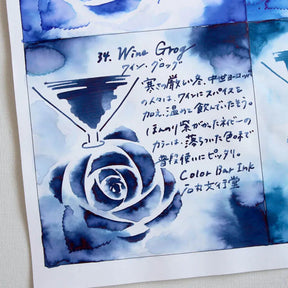 34. Wine Grog
ワイン・グロッグ
寒さの厳しい冬、中世ヨーロッパ
の人々は、ワインにスパイスを
加え、温めて飲んでいたそう。
ほんのり紫がかったネイビーの
カラーは、落ちついた色味で
普段使いにピッタリ。
Color Bar Ink
石丸文行堂